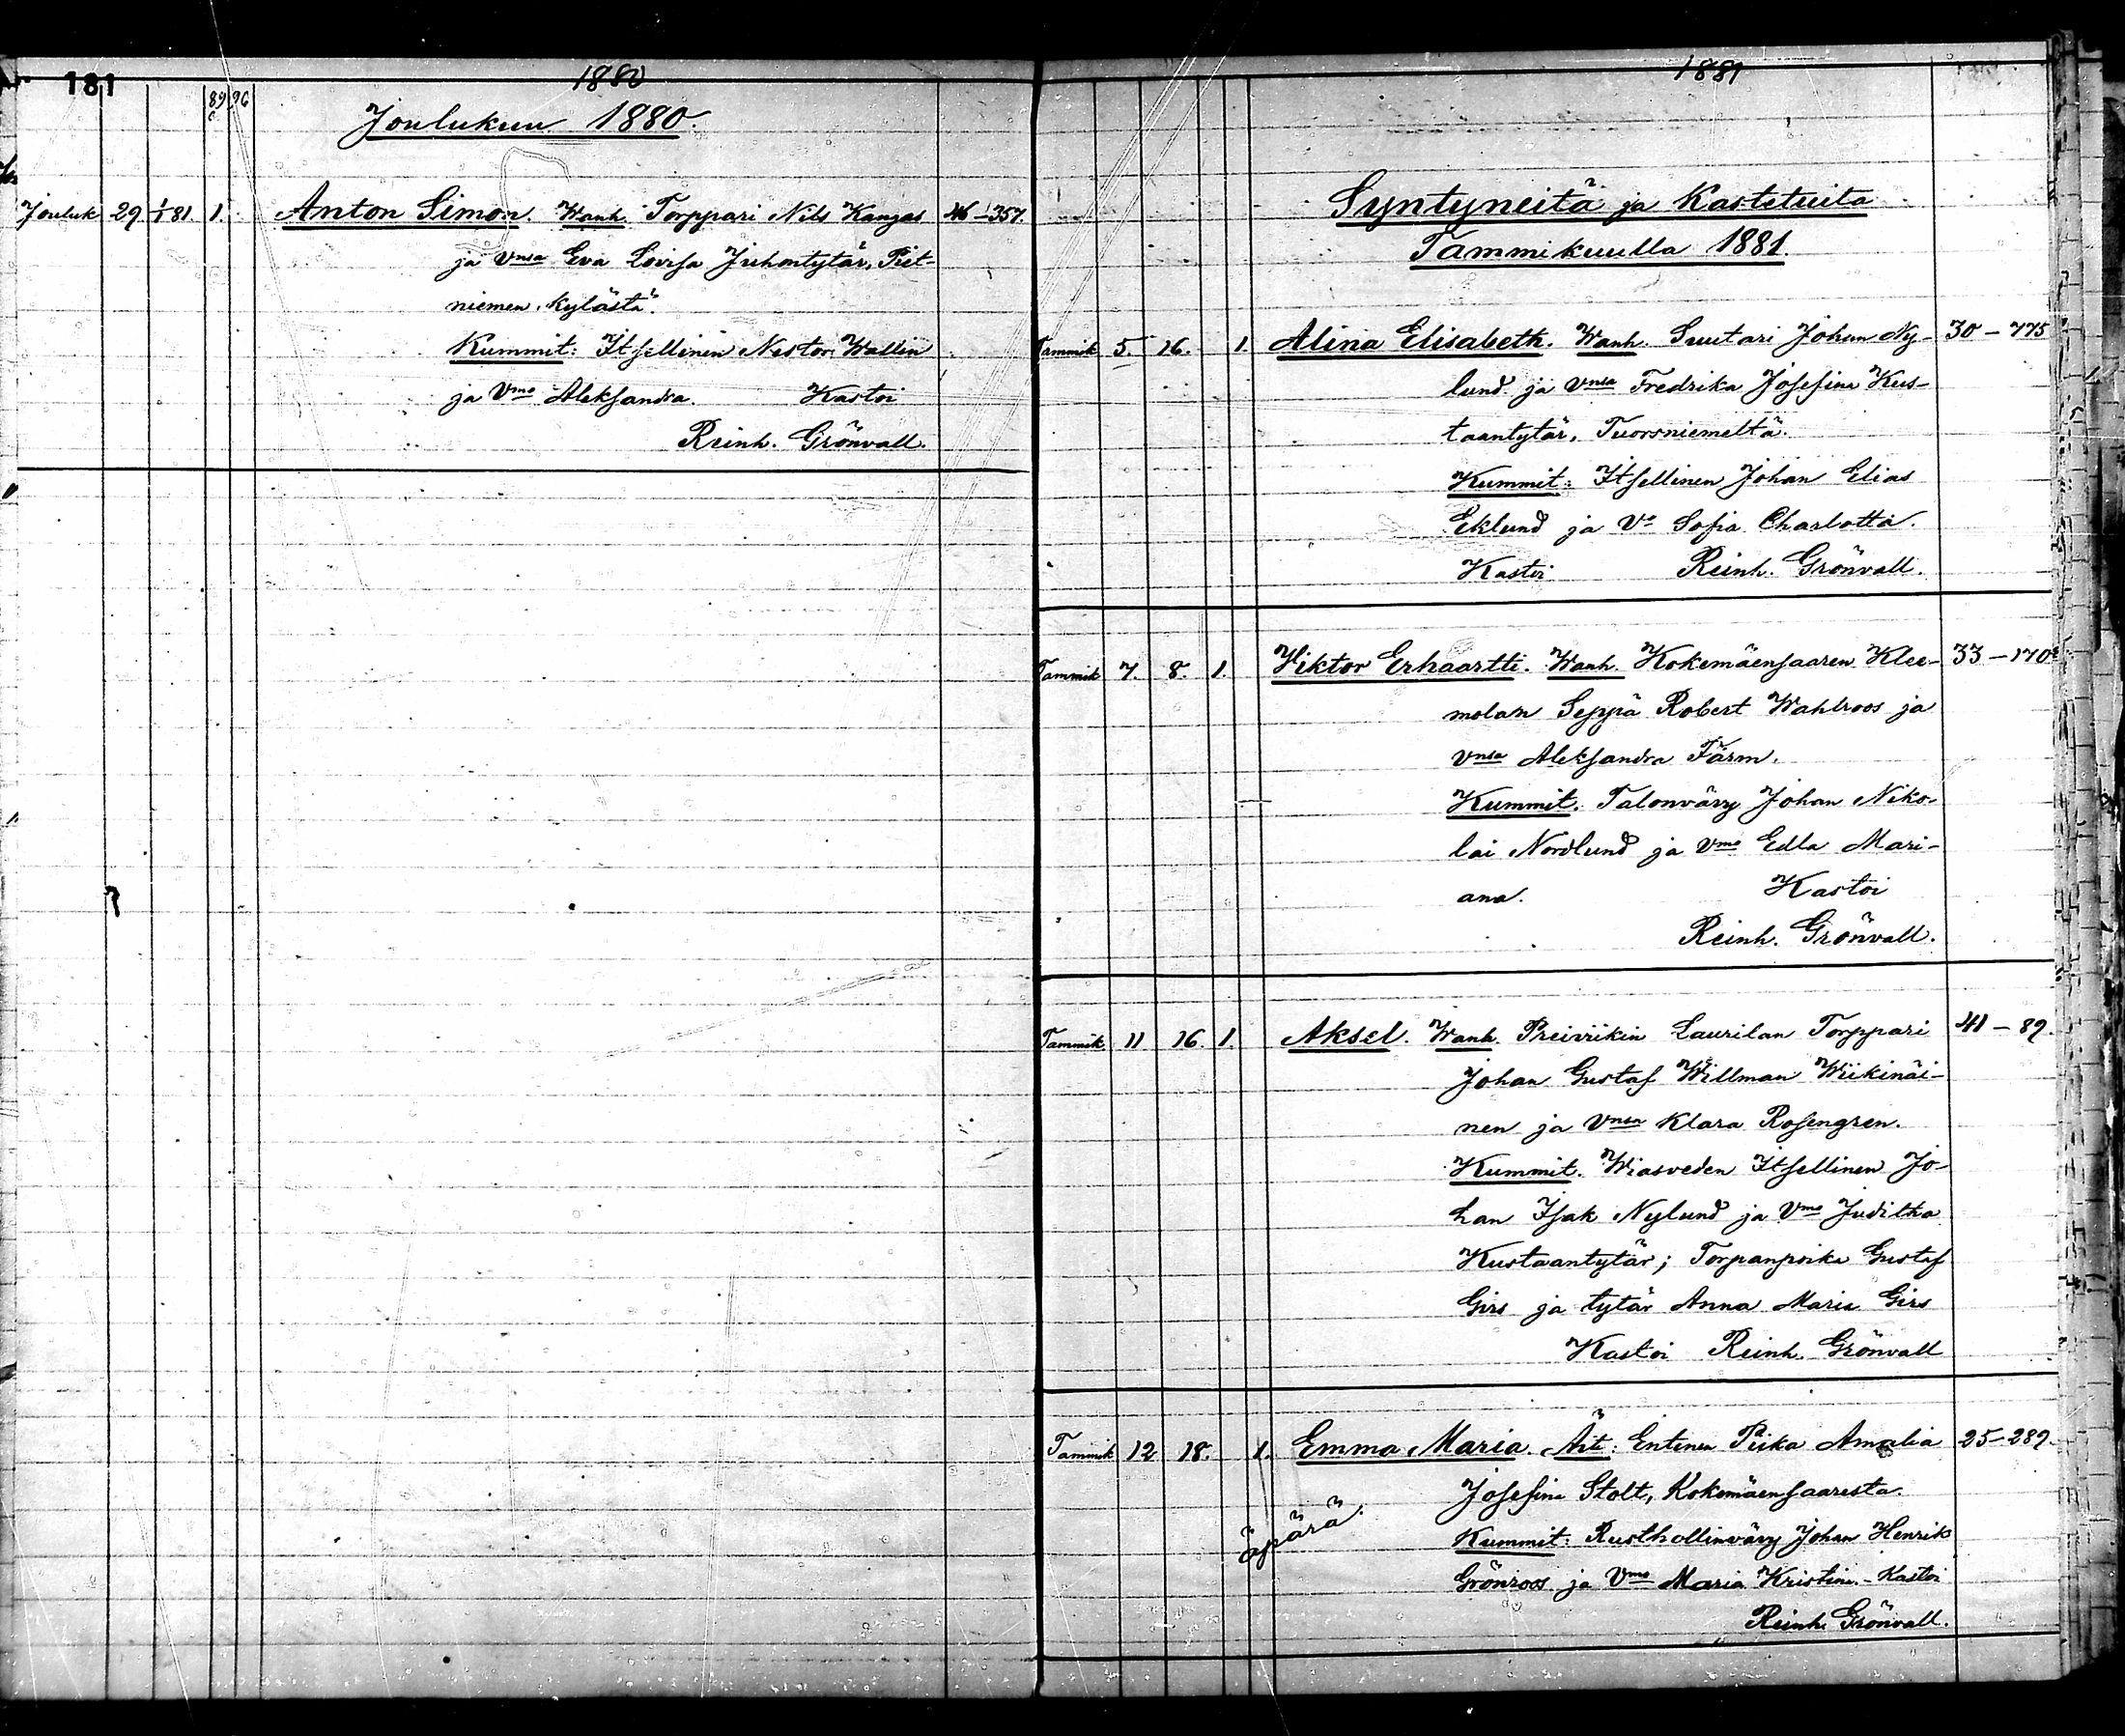 181
1880
89 96
Joulukuu 1880.
Jouluk 29. 1/1 81 1. Anton Simon. Wanh. Torppari Nils Kangas 46-357.
ja Vnsa Eva Lovisa Juhontytär, Piet-
niemen kylästä.
Kummit: Itsellinen Nestor Wallin
ja Vmo Aleksandra. Kastoi
Reinh. Grönvall.
1881
Syntyneitä ja Kastetuita
Tammikuulla 1881.
Tammik 5. 16. 1. Alina Elisabeth. Wanh. Suutari Johan Ny- 30-775
lund ja Vnsa Fredrika Josefina Kus-
taantytär, Tuorsniemeltä.
Kummit: Itsellinen Johan Elias
Eklund ja Vo Sofia Charlotta.
Kastoi Reinh. Grönvall.
Tammik 7. 8. 1. Viktor Erhaartti. Wanh. Kokemäensaaren Klee- 33-170
molan Seppä Robert Wahlroos ja
Vnsa Aleksandra Färm.
Kummit. Talonväry Johan Niko-
lai Nordlund ja Vmo Edla Mari-
ana. Kastoi
Reinh. Grönvall.
Tammik. 11 16. 1. Aksel. Wanh. Preiviikin Laurilan Torppari 41-89.
Johan Gustaf Willman Wiikinäi-
nen ja Vnsa Klara Rosengren.
Kummit. Wiasveden Itsellinen Jo-
han Isak Nylund ja Vmo Juditha
Kustaantytär; Torpanpoika Gustaf
Girs ja tytär Anna Maria Girs
Kastoi Reinh. Grönvall
Tammik 12 18. 1. Emma Maria. Äiti: Entinen Piika Amalia 25-289.
Josefina Stolt, Kokemäensaaresta.
äpärä. Kummit: Rusthollinväry Johan Henrik
Grönroos ja Vmo Maria Kristina. - Kastoi
Reinh. Grönvall.